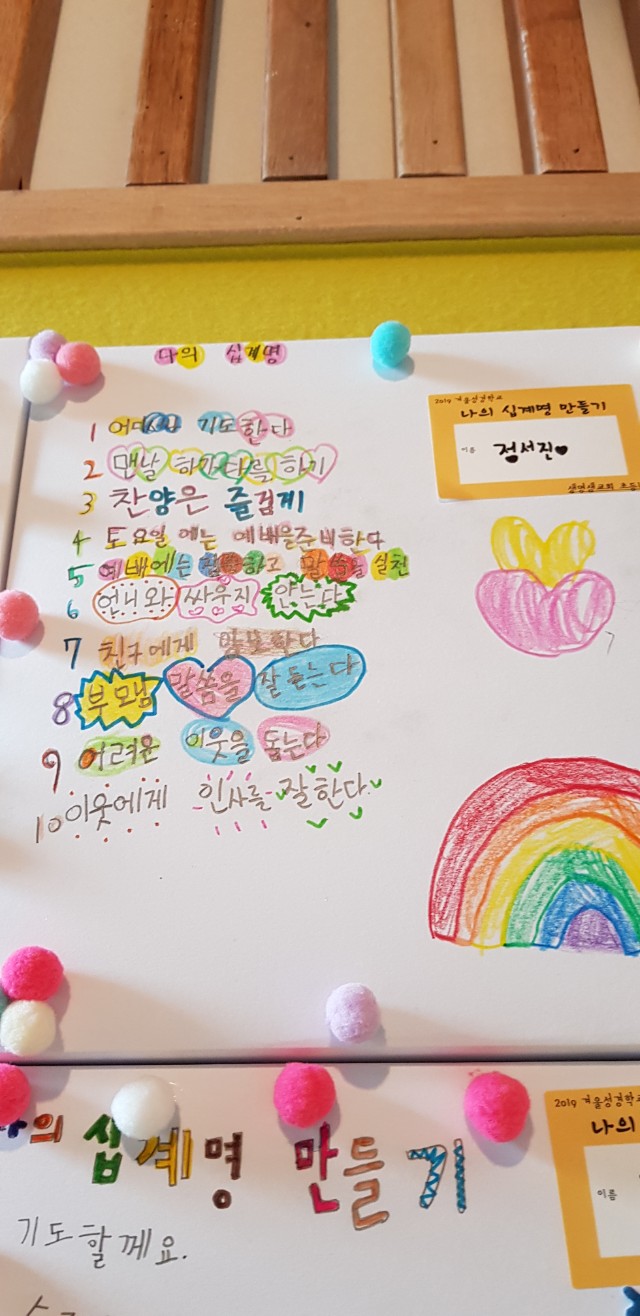 나의 십계명
1 어디서나 기도한다
2 맨날 하가다를 하기
3 찬양은 즐겁게
4 토요일 에는 예배을준비한다
5 예배에는 하고 말씀을 실천
6 언니와 싸우지 안는다
7 친구에게 한다
8 부모님 말씀을 잘 듣는다
9 어려운 이웃을 돕는다
10 이웃에게 인사를 잘한다.
2019 겨울성경학교
나의 십계명 만들기
이름 정서진♥
나의 십계명 만들기
기도할께요.
2019 겨울성경학교
나의
이름